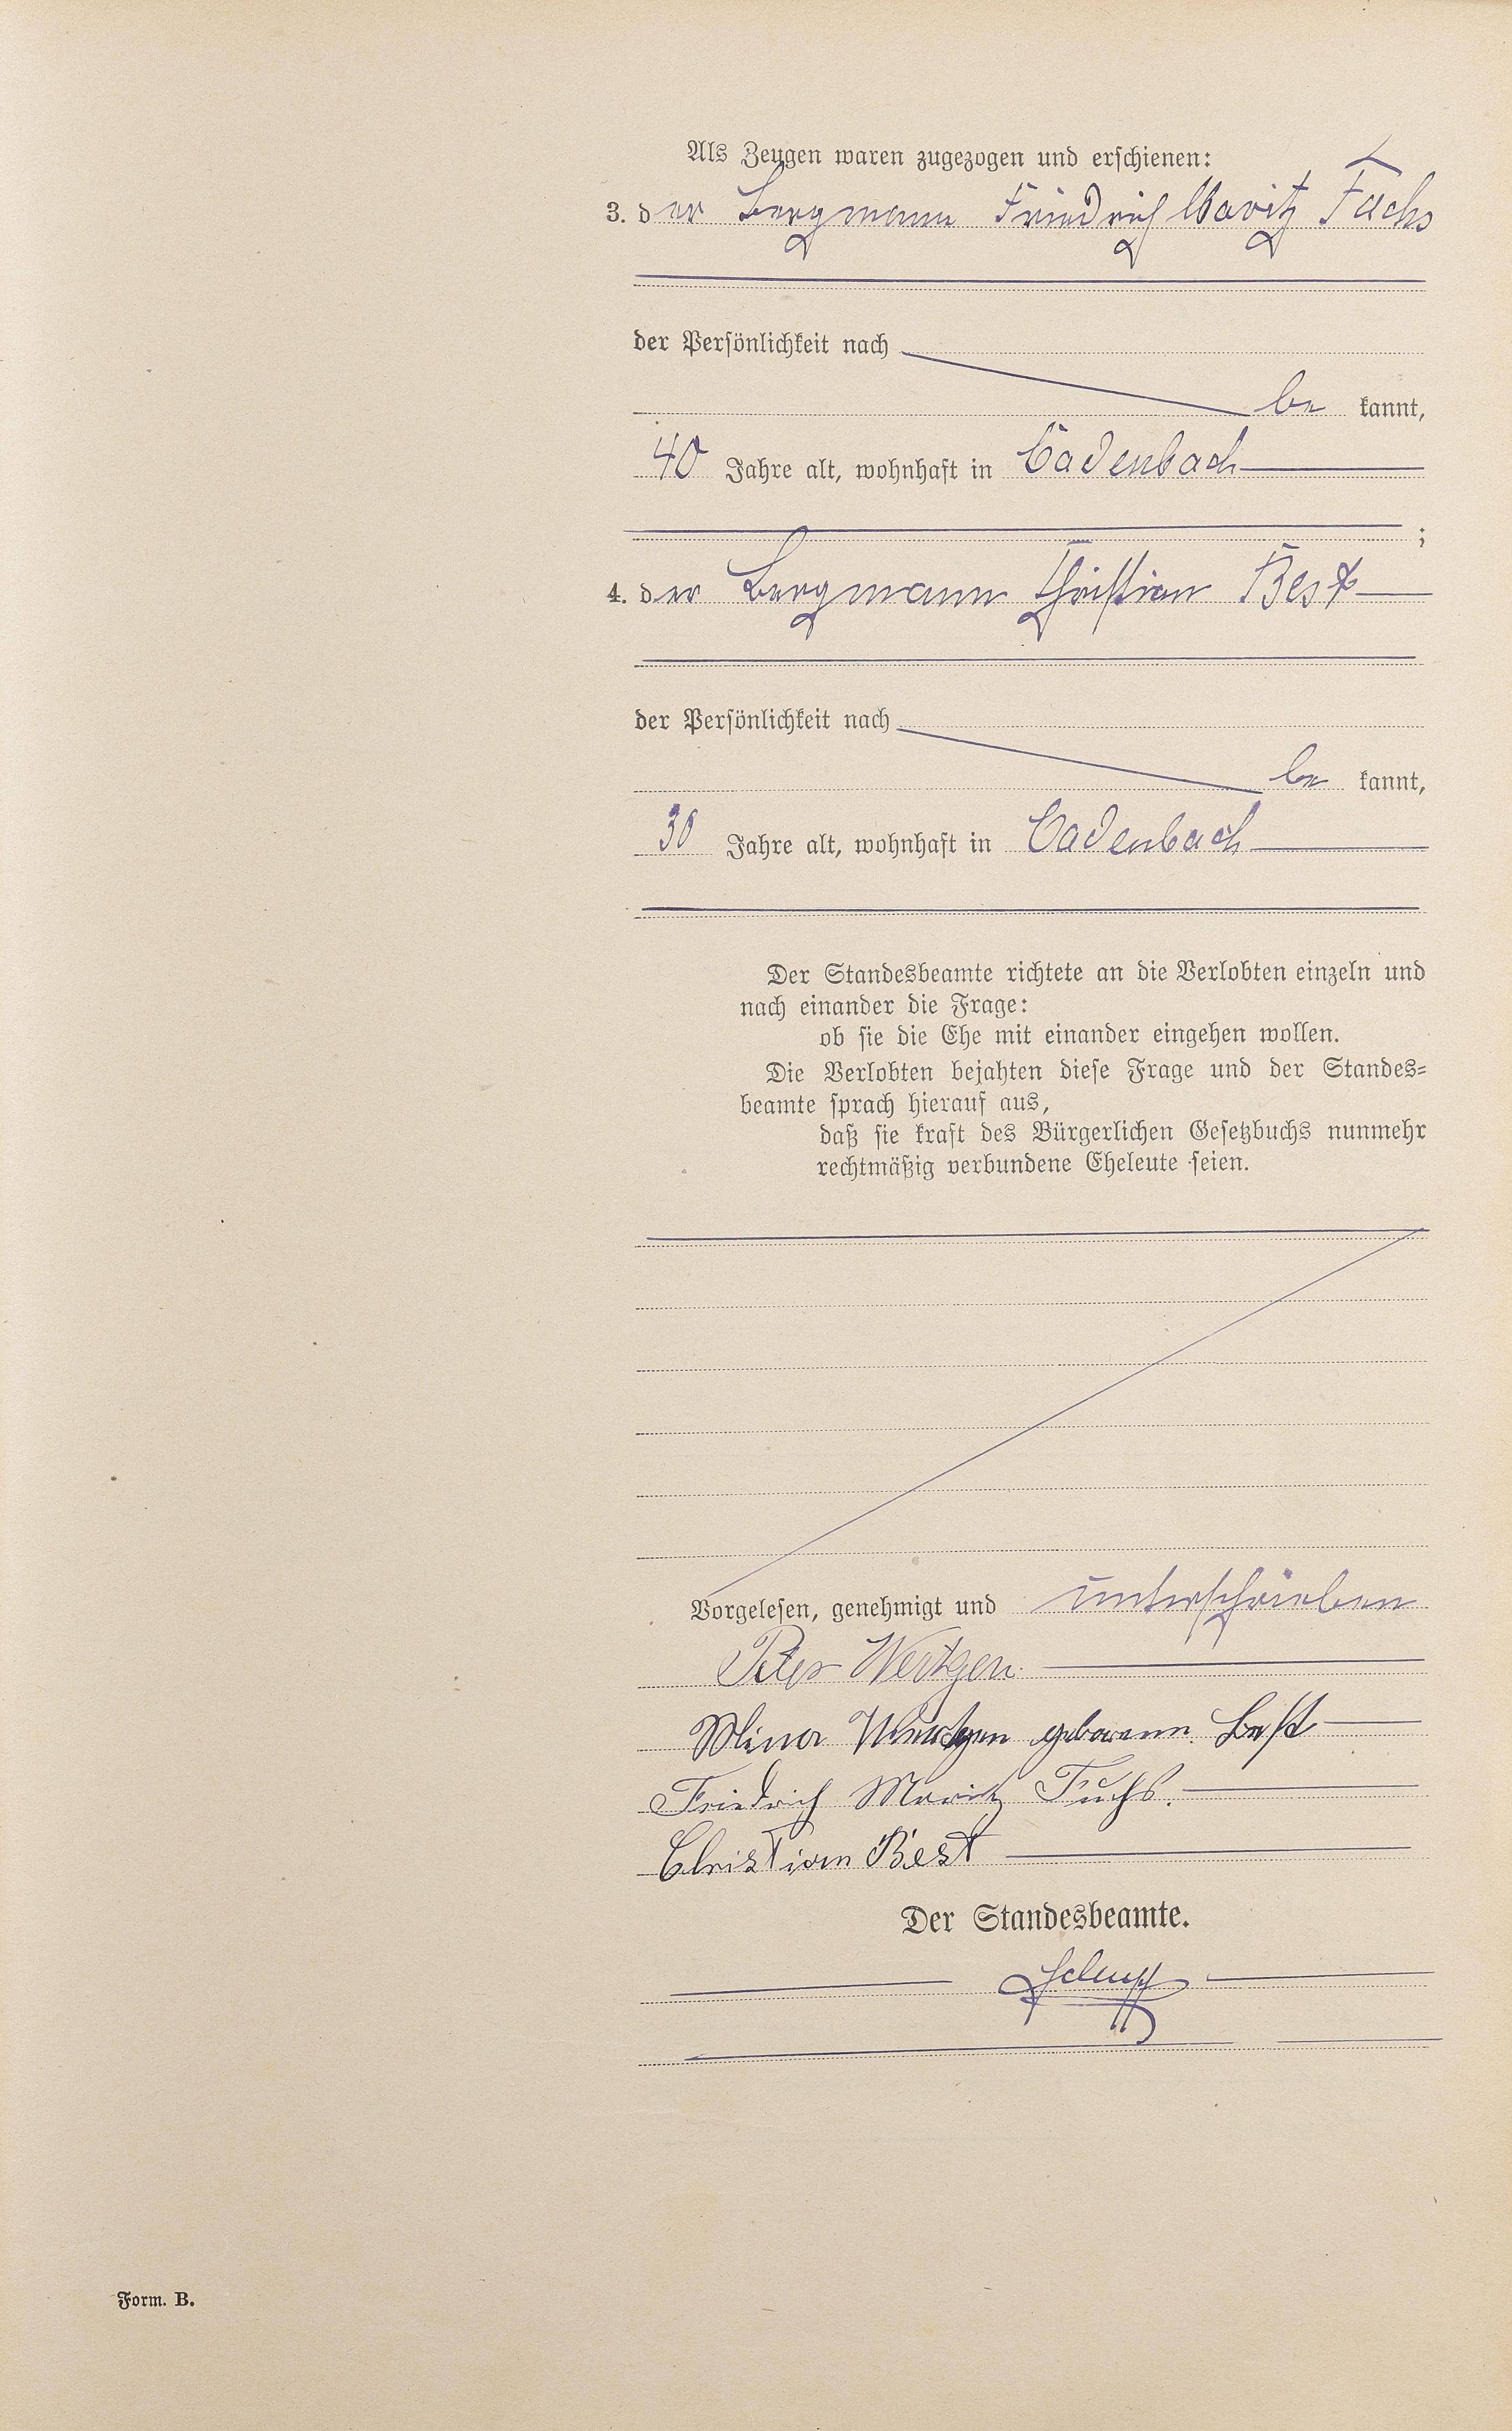 Als Zeugen waren zugezogen und erschienen:
3. der Bergmann Friedrich Moritz Fuchs
der Persönlichkeit nach
be kannt,
40 Jahre alt, wohnhaft in Cadenbach
;
4. der Bergmann Christian Best
der Persönlichkeit nach
be kannt,
30 Jahre alt, wohnhaft in Cadenbach
Der Standesbeamte richtete an die Verlobten einzeln und
nach einander die Frage:
ob sie die Ehe mit einander eingehen wollen.
Die Verlobten bejahten diese Frage und der Standes=
beamte sprach hierauf aus,
daß sie kraft des Bürgerlichen Gesetzbuchs nunmehr
rechtmäßig verbundene Eheleute seien.
Vorgelesen, genehmigt und unterschrieben
Peter Wertgen.
Mina Wertgen geborenn. Best
Friedrich Moritz Fuchs.
Christian Best
Der Standesbeamte.
Form. B.